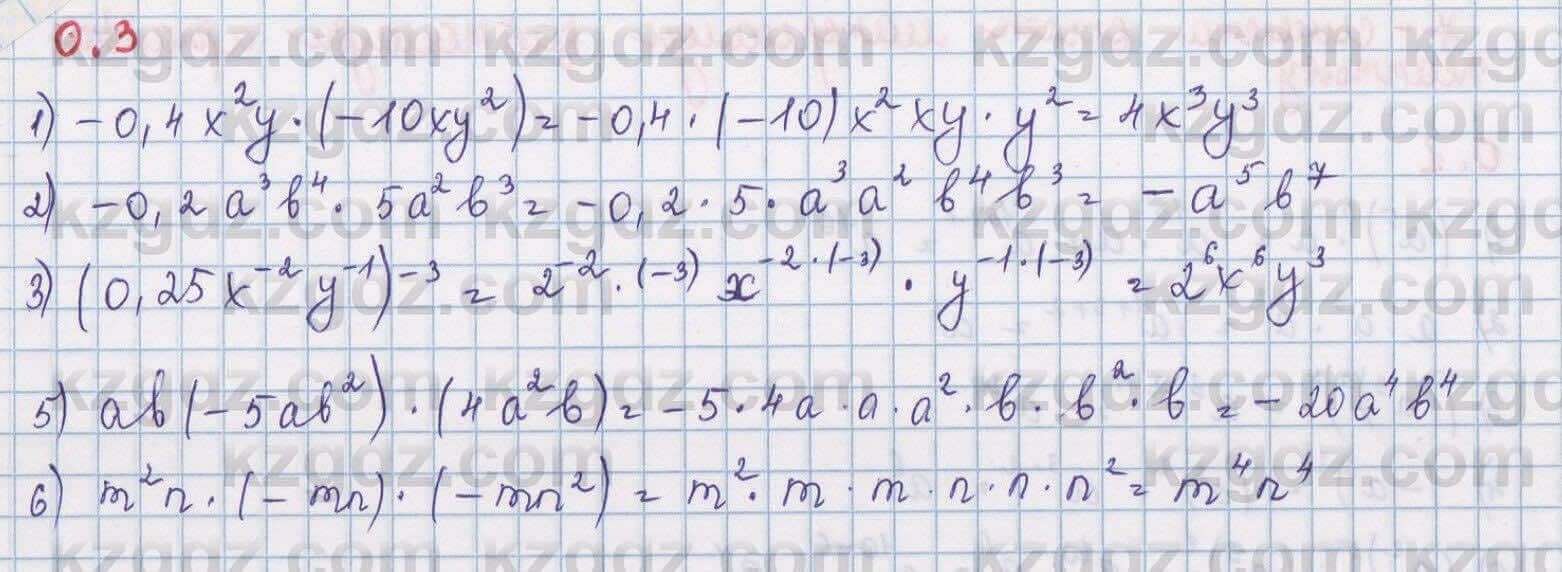 0.3
1) -0,4x²y·(-10xy²)=-0,4·(-10)x²xy·y²=4x³y³
2) -0,2a³b⁴·5a²b³=-0,2·5·a³a²b⁴b³=-a⁵b⁷
3) (0,25x⁻²y⁻¹)⁻³=2⁻²·⁽⁻³⁾x⁻²·⁽⁻³⁾·y⁻¹·⁽⁻³⁾=2⁶x⁶y³
5) ab(-5ab²)·(4a²b)=-5·4a·a·a²·b·b²·b=-20a⁴b⁴
6) m²n·(-mn)·(-mn²)=m²·m·m·n·n·n²=m⁴n⁴